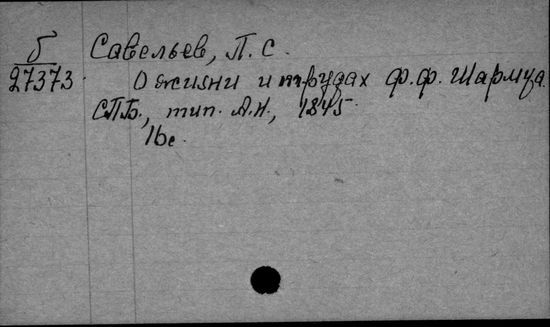 б Савельев, П. С.
27373. О жизни и трудах Ф. Ф. Шармуа.
СПБ., тип. А.Н., 1845.
16с.